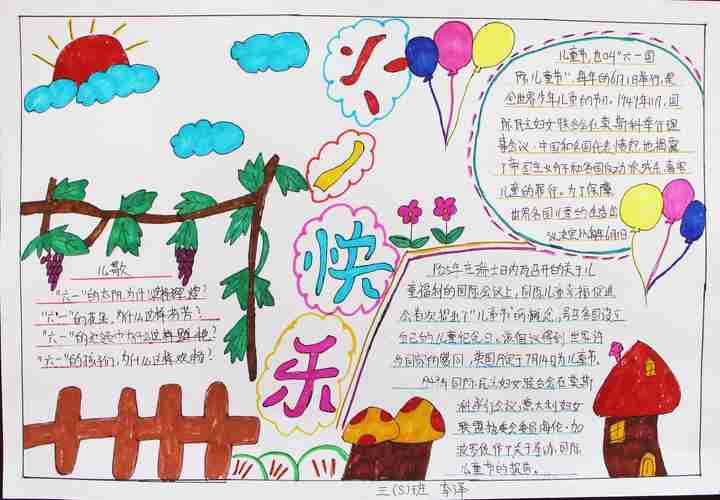 六
一
快
乐
儿童节，也叫“六一国
际儿童节”，每年的6月1日举行，是
全世界少年儿童的节日。1949年11月，国
际民主妇女联合会在莫斯科举行理
事会议，中国和各国代表愤怒地揭露
了帝国主义分子和各国反动派残杀、毒害
儿童的罪行。为了保障
世界各国儿童的生存
议决定以每年6月1日
儿歌
“六一”的太阳，为什么这样辉煌？
“六一”的花朵，为什么这样芬芳？
“六一”的为什么这样
“六一”的孩子们，为什么这样欢畅？
1925年在瑞士日内瓦召开的关于儿
童福利的国际会议上，国际儿童幸福促进
会首次提出了“儿童节”的概念，号召各国设立
自己的儿童纪念日。该倡议得到世界许
多国家的赞同，英国规定于7月14日为儿童节。
1949年国际民主妇女联合会在莫斯
科举行会议，意大利妇女
联盟执委会委员海伦·加
波里伐作了关于举办国际
儿童节的报告。
三(5)班 李译